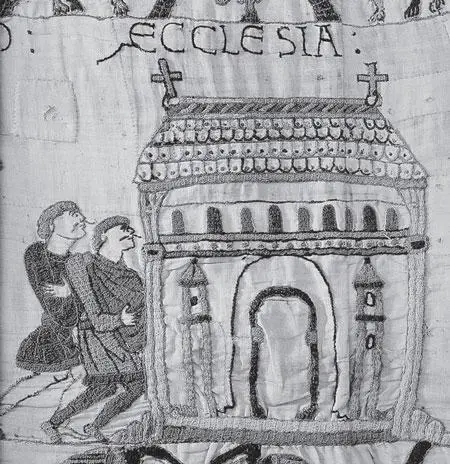 O: ECCLESIA: